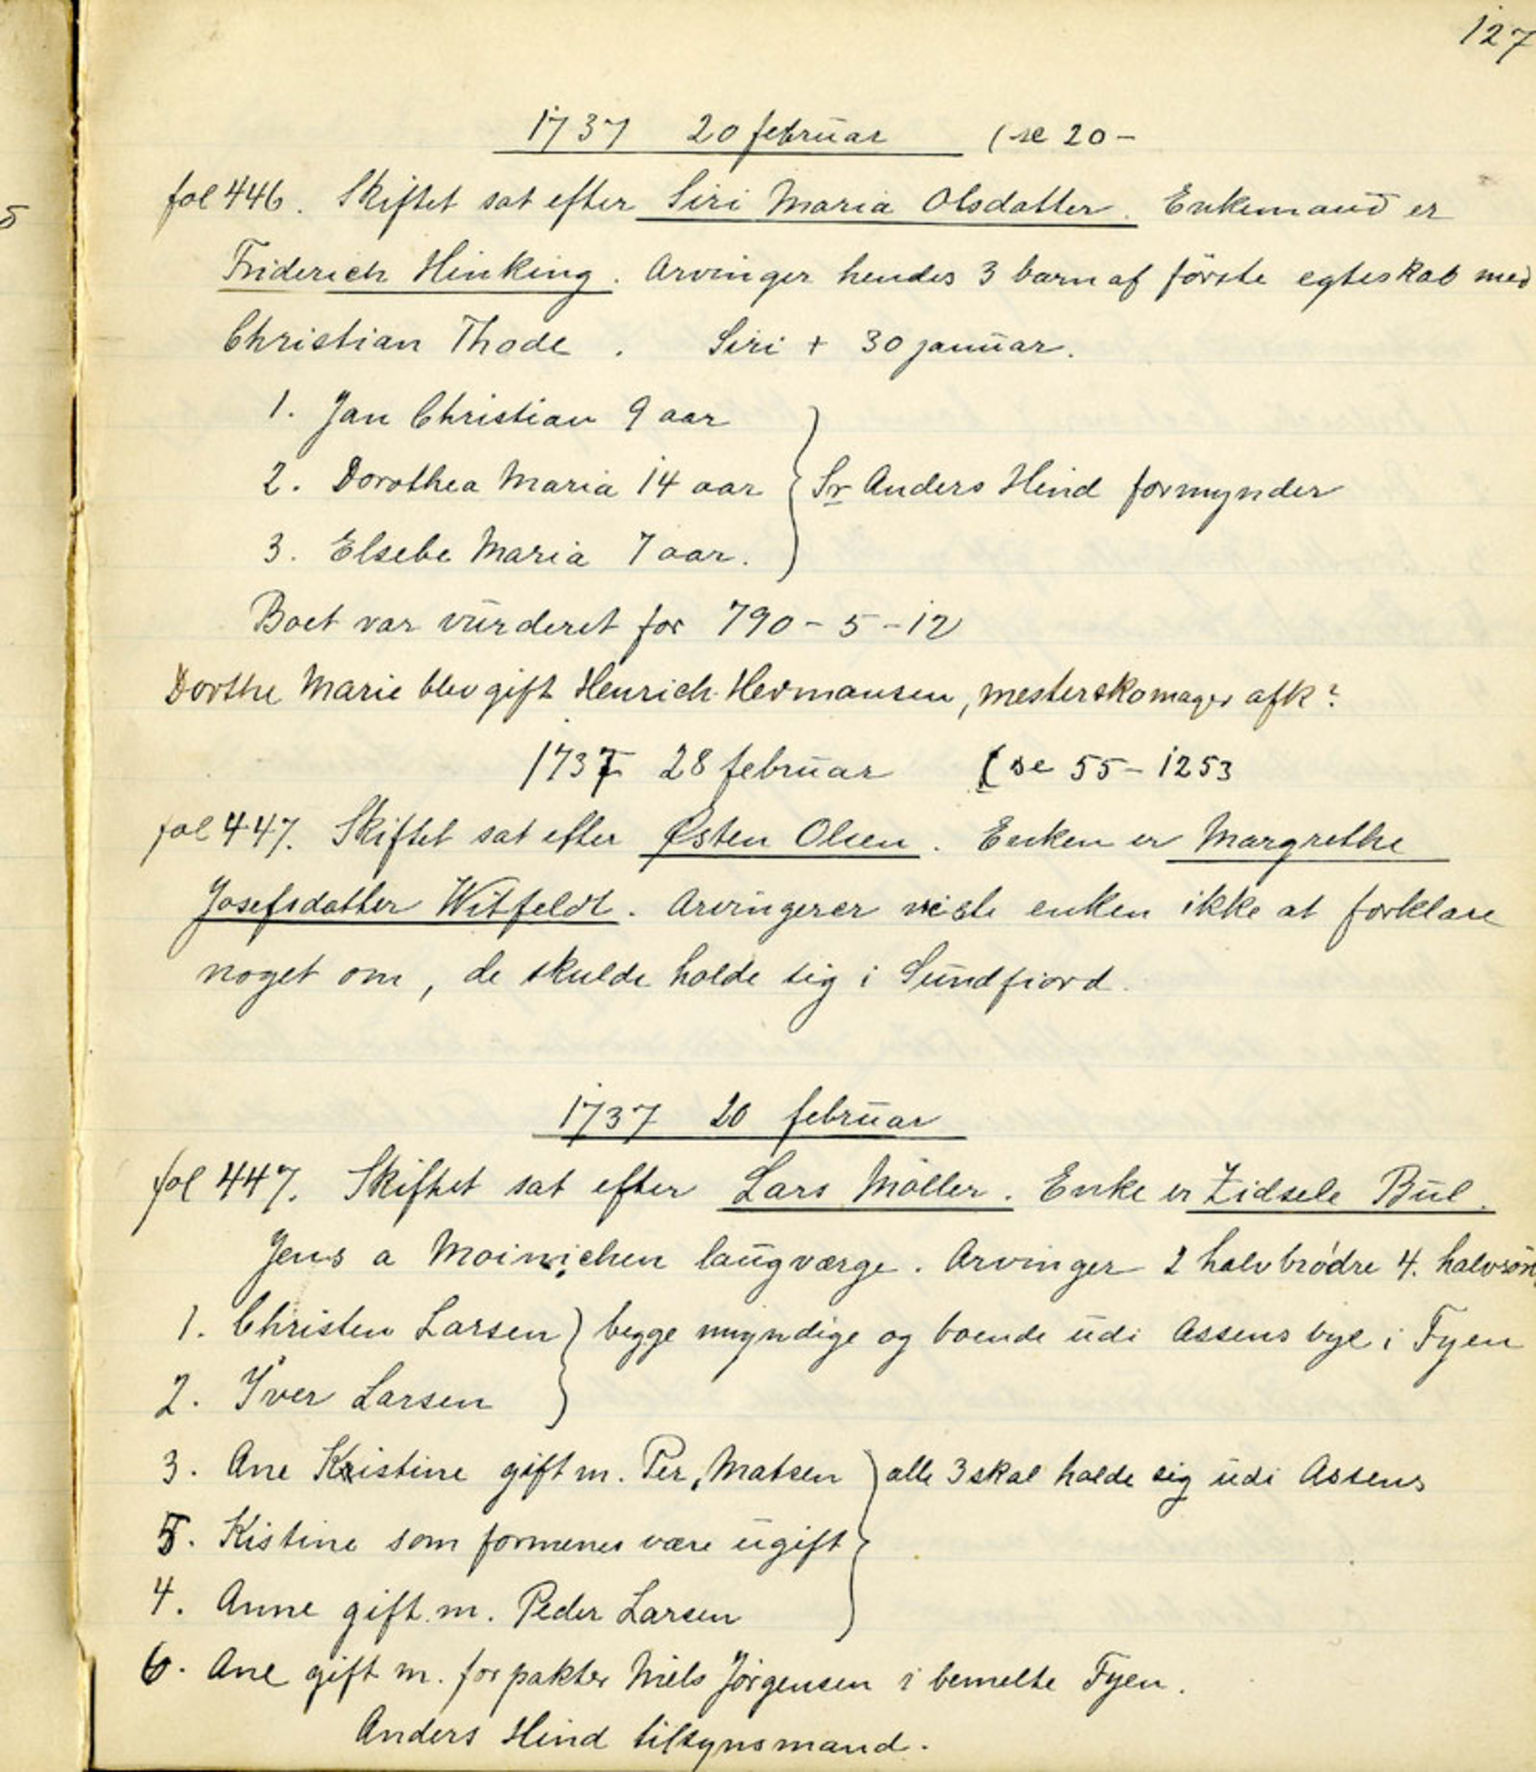 127
1737 20 februar (se 20-
fol 446. Skiftet sat efter Siri Maria Olsdatter. Enkemand er
5
Friderich Hinking. Arvinger hendes 3 barn af förste egteskab med
Christian Thode. Siri + 30 januar.
1. Jan Christian 9 aar
2. Dorothea Maria 14 aar Sr Anders Hind formynder
3. Elsebe Maria 7 aar.
Boet var vurderet for 790-5-12
Dorthe Marie blev gift Henrich Hermansen, mesterskomager afk?
1737 28 februar (se 55-1253
fol 447. Skiftet sat efter Østen Olsen. Enken er Margrethe
Josefsdatter Witfeldt. Arvingerer viste enken ikke at forklare
noget om, de skulde holde sig i Sundfiord.
1737 20 februar
fol 447. Skiftet sat efter Lars Möller. Enke er Zidsele Bul.
Jens a Moinichen laugværge. Arvinger 2 halvbrödre 4. halvsön
1. Christen Larsen begge myndige og boende udi Assens bye i Fyen
2. Iver Larsen
3. Ane Kristine gift m. Per, Matsen alle 3 skal holde sig udi Assens
5. Kistine som formenes være ugift
4. Anne gift m. Peder Larsen
6. Ane gift m. forpakter Niels Jörgensen i bemelte Fyen.
Anders Hind tilsynsmand.